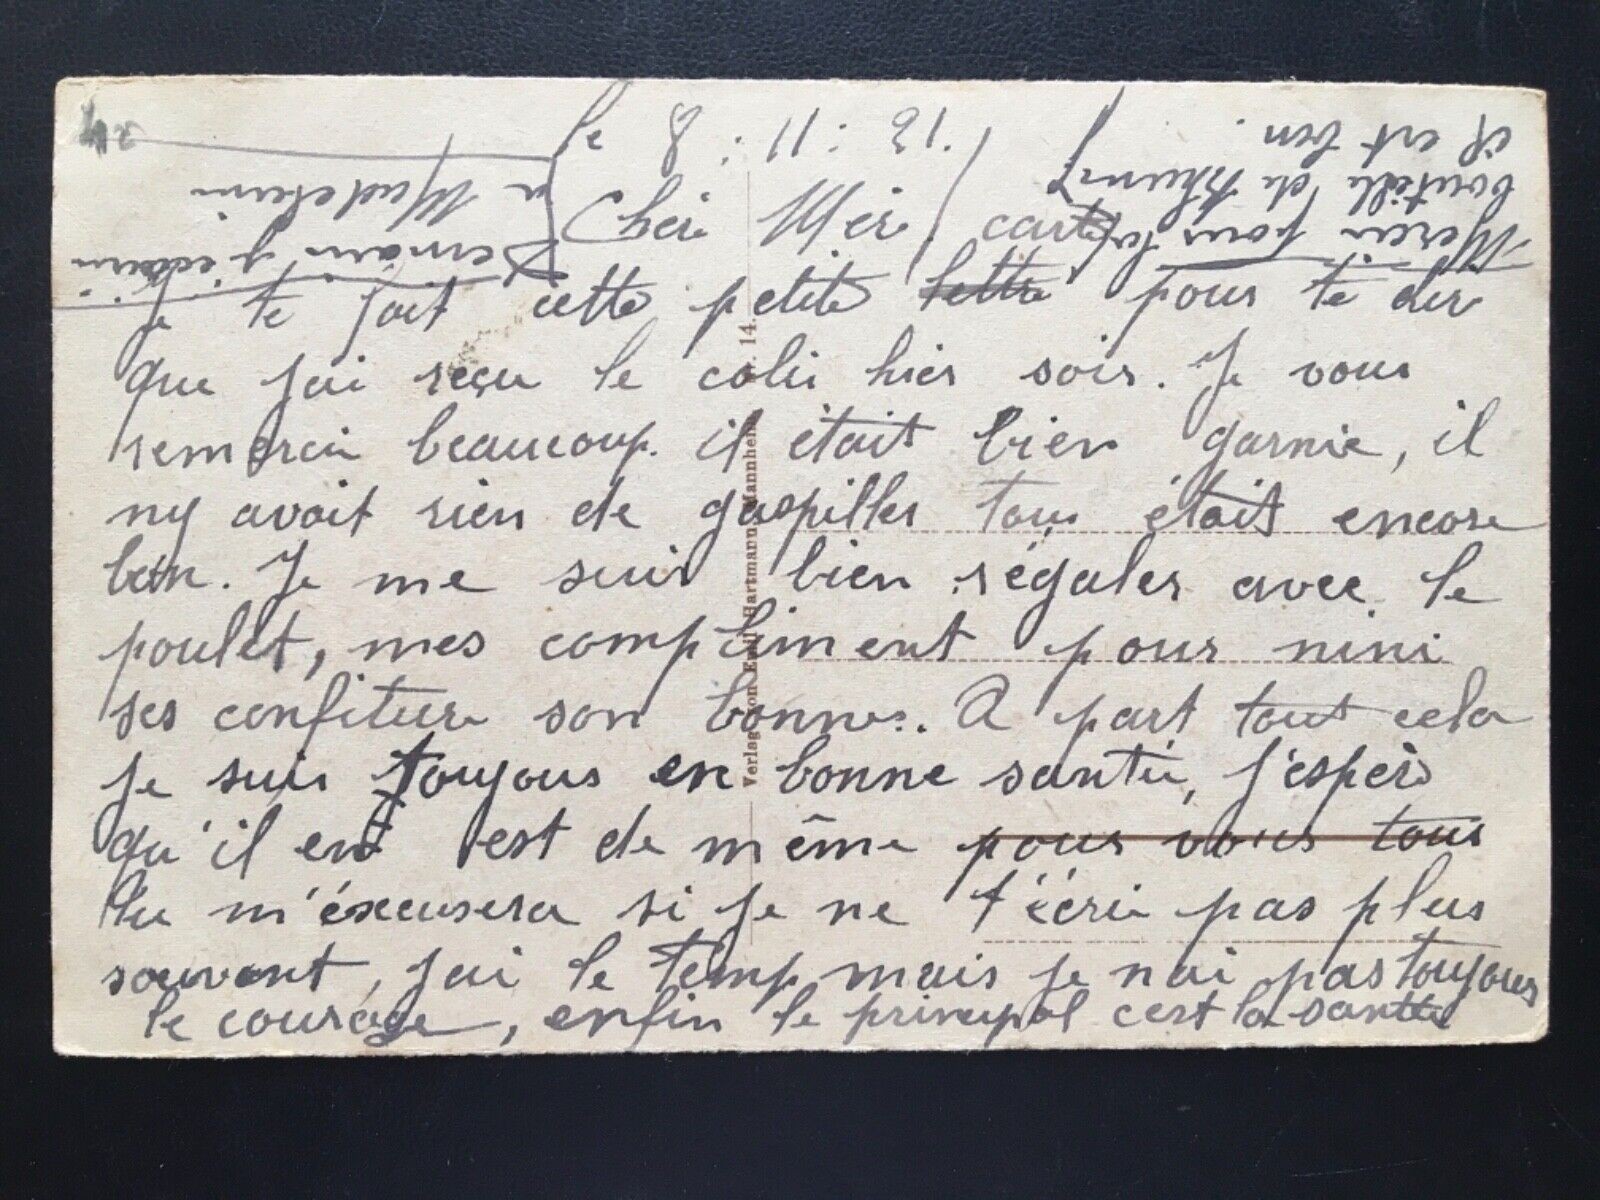 le 8 : 11 : 21.
Chèr Mèr. carte
Je te fait cette petite lettre pour te dir
que jai reçu le colis hier soir. Je vous
remerci beaucoup. il était bien garnie, il
ny avait rien de gaspiller tous était encore
bon. Je me suis bien régaler avec le
poulet, mes compliment pour nini
ses confiture son bonnes. A part tout cela
je suis toujous en bonne santé, j'espère
qu'il en est de même pour vous tous
Tu m'éxcusera si je ne t'écri pas plus
souvent, jai le temp mais je nai pas toujours
le courage, enfin le principal cest la santée
Merci pour la
bouteille de Rhum
il est bon.
Demain j'écrir
a Madeleine
Verlag von Emil Hartmann, Mannheim
14.